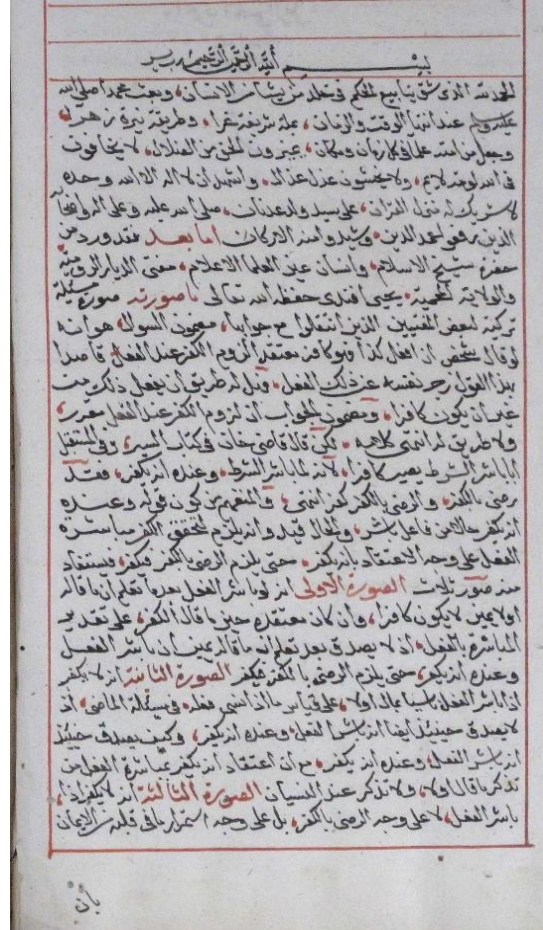 بسم الله الرحمن الرحيم
الحمد لله الذي شق ينابيع الحكم في خلد من يشا من الانسان، وبعث محمدا صلى الله
عليه وسلم عند انتها الوقت والزمان، بملة شريفة غرا، وطريقة نيرة زهرا،
وجعل من امته علما في كل زمان ومكان، يميزون الحق من الضلال، لا يخافون
في الله لومة لايم، ولا يخشون عذل عذال، واشهد ان لا اله الا الله وحده
لا شريك له منزل القران، على سيد ولد عدنان، صلى الله عليه وعلى اله
الذين رفعوا لحمد الدين، وشيدوا منه الاركان اما بعد فقد ورد من
حضرة شيخ الاسلام، وانسان عين العلما الاعلام، مفتي الديار الرومية
والولاية، يحيى افندي حفظه الله تعالى ما صورته صورة مسئلة
تركية لبعض المفتيين الذين انتقلوا مع جوابها، مضمون السوال هو انه
لو قال شخص ان افعل كذا فهو كافر معتقدا لزوم الكفر عند الفعل قاصدا
بهذا القول زجر نفسه عن ذلك الفعل، هل له طريق ان يفعل ذلك من
غير ان يكون كافرا، ومضمون الجواب ان لزوم الكفر عند الفعل مقرر،
ولا طريق له انتهى كلامه، لكن قال قاضي خان في كتاب السير، وفي المستقبل
اذا باشر الشرط يصير كافرا، لانه لما باشر الشرط، وعنده انه يكفر، فقد
رضي بالكفر، والرضى بالكفر كفر انتهى، والمفهوم من كون قوله وعنده
انه يكفر حالا من فاعل باشر، والحال قيد وانه يلزم لتحقق الكفر مباشرة
الفعل على وجه الاعتقاد بانه يكفر، حتى يلزم الرضى بالكفر فيكفر، فيستفاد
منه صور ثلاث الصورة الاولى انه لو باشر الفعل بعد ما تعلم ان ما قاله
اولا يمين لا يكون كافرا، وان كان معتقده حين ما قال الكفر، على تقدير
المباشرة بالفعل، اذ لا يصدق بعد تعلم ان ما قاله يمين ان باشر الفعل
وعنده انه يكفر، حتى يلزم الرضى بالكفر فيكفر الصورة الثانية انه لا يكفر
اذا باشر الفعل ناسيا ما قال اولا، على قياس ما اذا نسي فعله، في مسئلة الماضي، اذ
لا يصدق حينئذ ايضا انه باشر الفعل، وعنده انه يكفر، وكيف يصدق حينئذ
انه باشر الفعل، وعنده انه يكفر، مع ان اعتقاد انه يكفر بمباشرة الفعل من
تذكر ما قال اولا، ولا تذكر عند النسيان الصورة الثالثة انه لا يكفر اذا
باشر الفعل، لا على وجه الرضى بالكفر، بل على وجه استمرار ما في قلبه من الايمان
بان